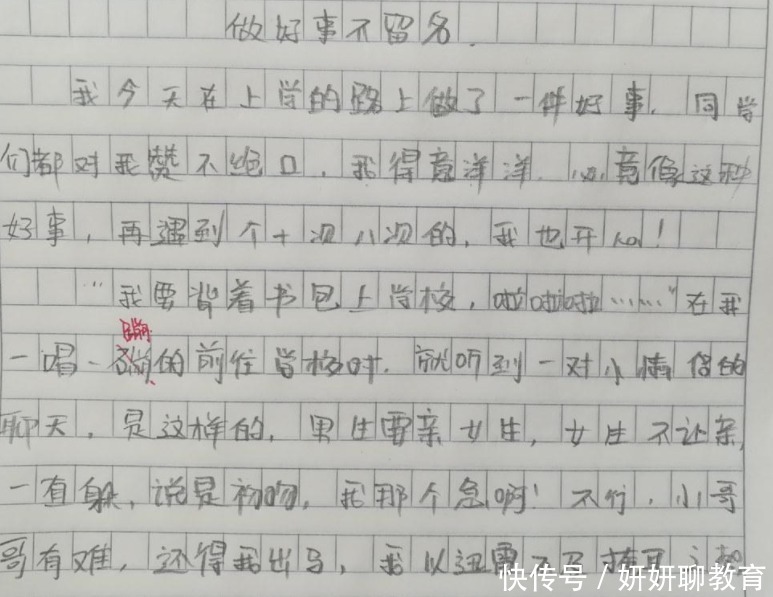 做好事不留名.
我今天在上学的路上做了一件好事. 同学
们都对我赞不绝口, 我得意洋洋. 竟像这种
好事, 再遇到个十次八次的, 我也开心!
"我要背着书包上学校, 啦啦啦……"在我
蹦
一唱一蹦的前往学校时. 就听到一对小情侣的
聊天, 是这样的, 男生要亲女生, 女生不让亲,
一直躲, 说是初吻, 我那个急啊! 不行, 小哥
哥有难, 还得我出马, 我以迅雷不及掩耳之势
快传号 / 妍妍聊教育